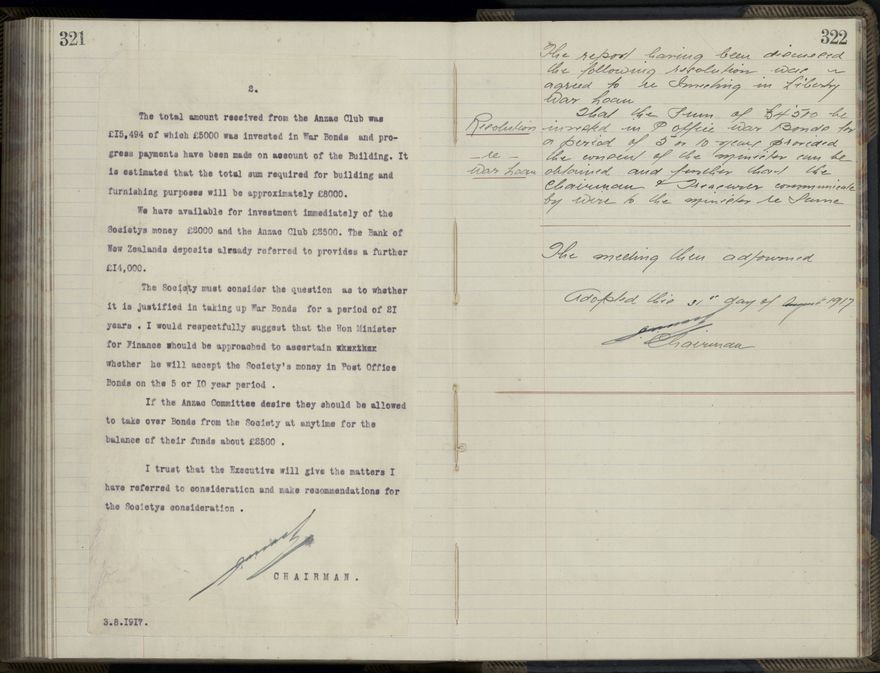 321
2.
The total amount received from the Anzac Club was
£15,494 of which £5000 was invested in War Bonds and pro-
gress payments have been made on account of the Building. It
is estimated that the total sum required for building and
furnishing purposes will be approximately £8000.
We have available for investment immediately of the
Societys money £2000 and the Anzac Club £2500. The Bank of
New Zealands deposits already referred to provides a further
£14,000.
The Society must consider the question as to whether
it is justified in taking up War Bonds for a period of 21
years . I would respectfully suggest that the Hon Minister
for Finance should be approached to ascertain
whether he will accept the Society's money in Post Office
Bonds on the 5 or 10 year period .
If the Anzac Committee desire they should be allowed
to take over Bonds from the Society at anytime for the
balance of their funds about £2500 .
I trust that the Executive will give the matters I
have referred to consideration and make recommendations for
the Societys consideration .
CHAIRMAN.
3.8.1917.
322
The report having been discussed
the following resolution was
agreed to re Investing in Liberty
War Loan
That the Sum of £4500 be
Resolution
invested in P Office War Bonds for
a period of 5 or 10 years provided
– re –
the consent of the minister can be
War Loan
obtained and further that the
Chairman & Treasurer communicate
by wire to the minister re Same
The meeting then adjourned
Adopted this 31st day of August 1917
Chairman